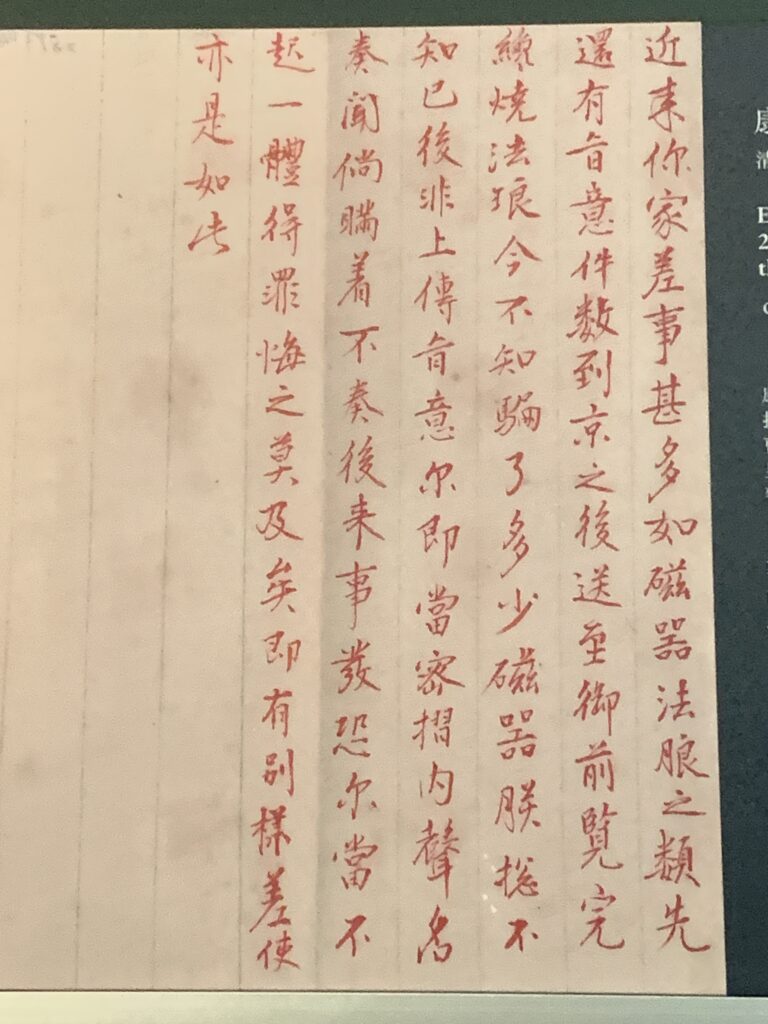 近来你家差事甚多如磁器法瑯之類先
還有旨意件数到京之後送至御前覧完
纔燒法瑯今不知騙了多少磁器朕捴不
知已後非上傳旨意尔即當宻摺内聲名
奏聞倘瞞着不奏後来事發恐尔當不
起一體得罪悔之莫及矣即有别樣差使
亦是如此